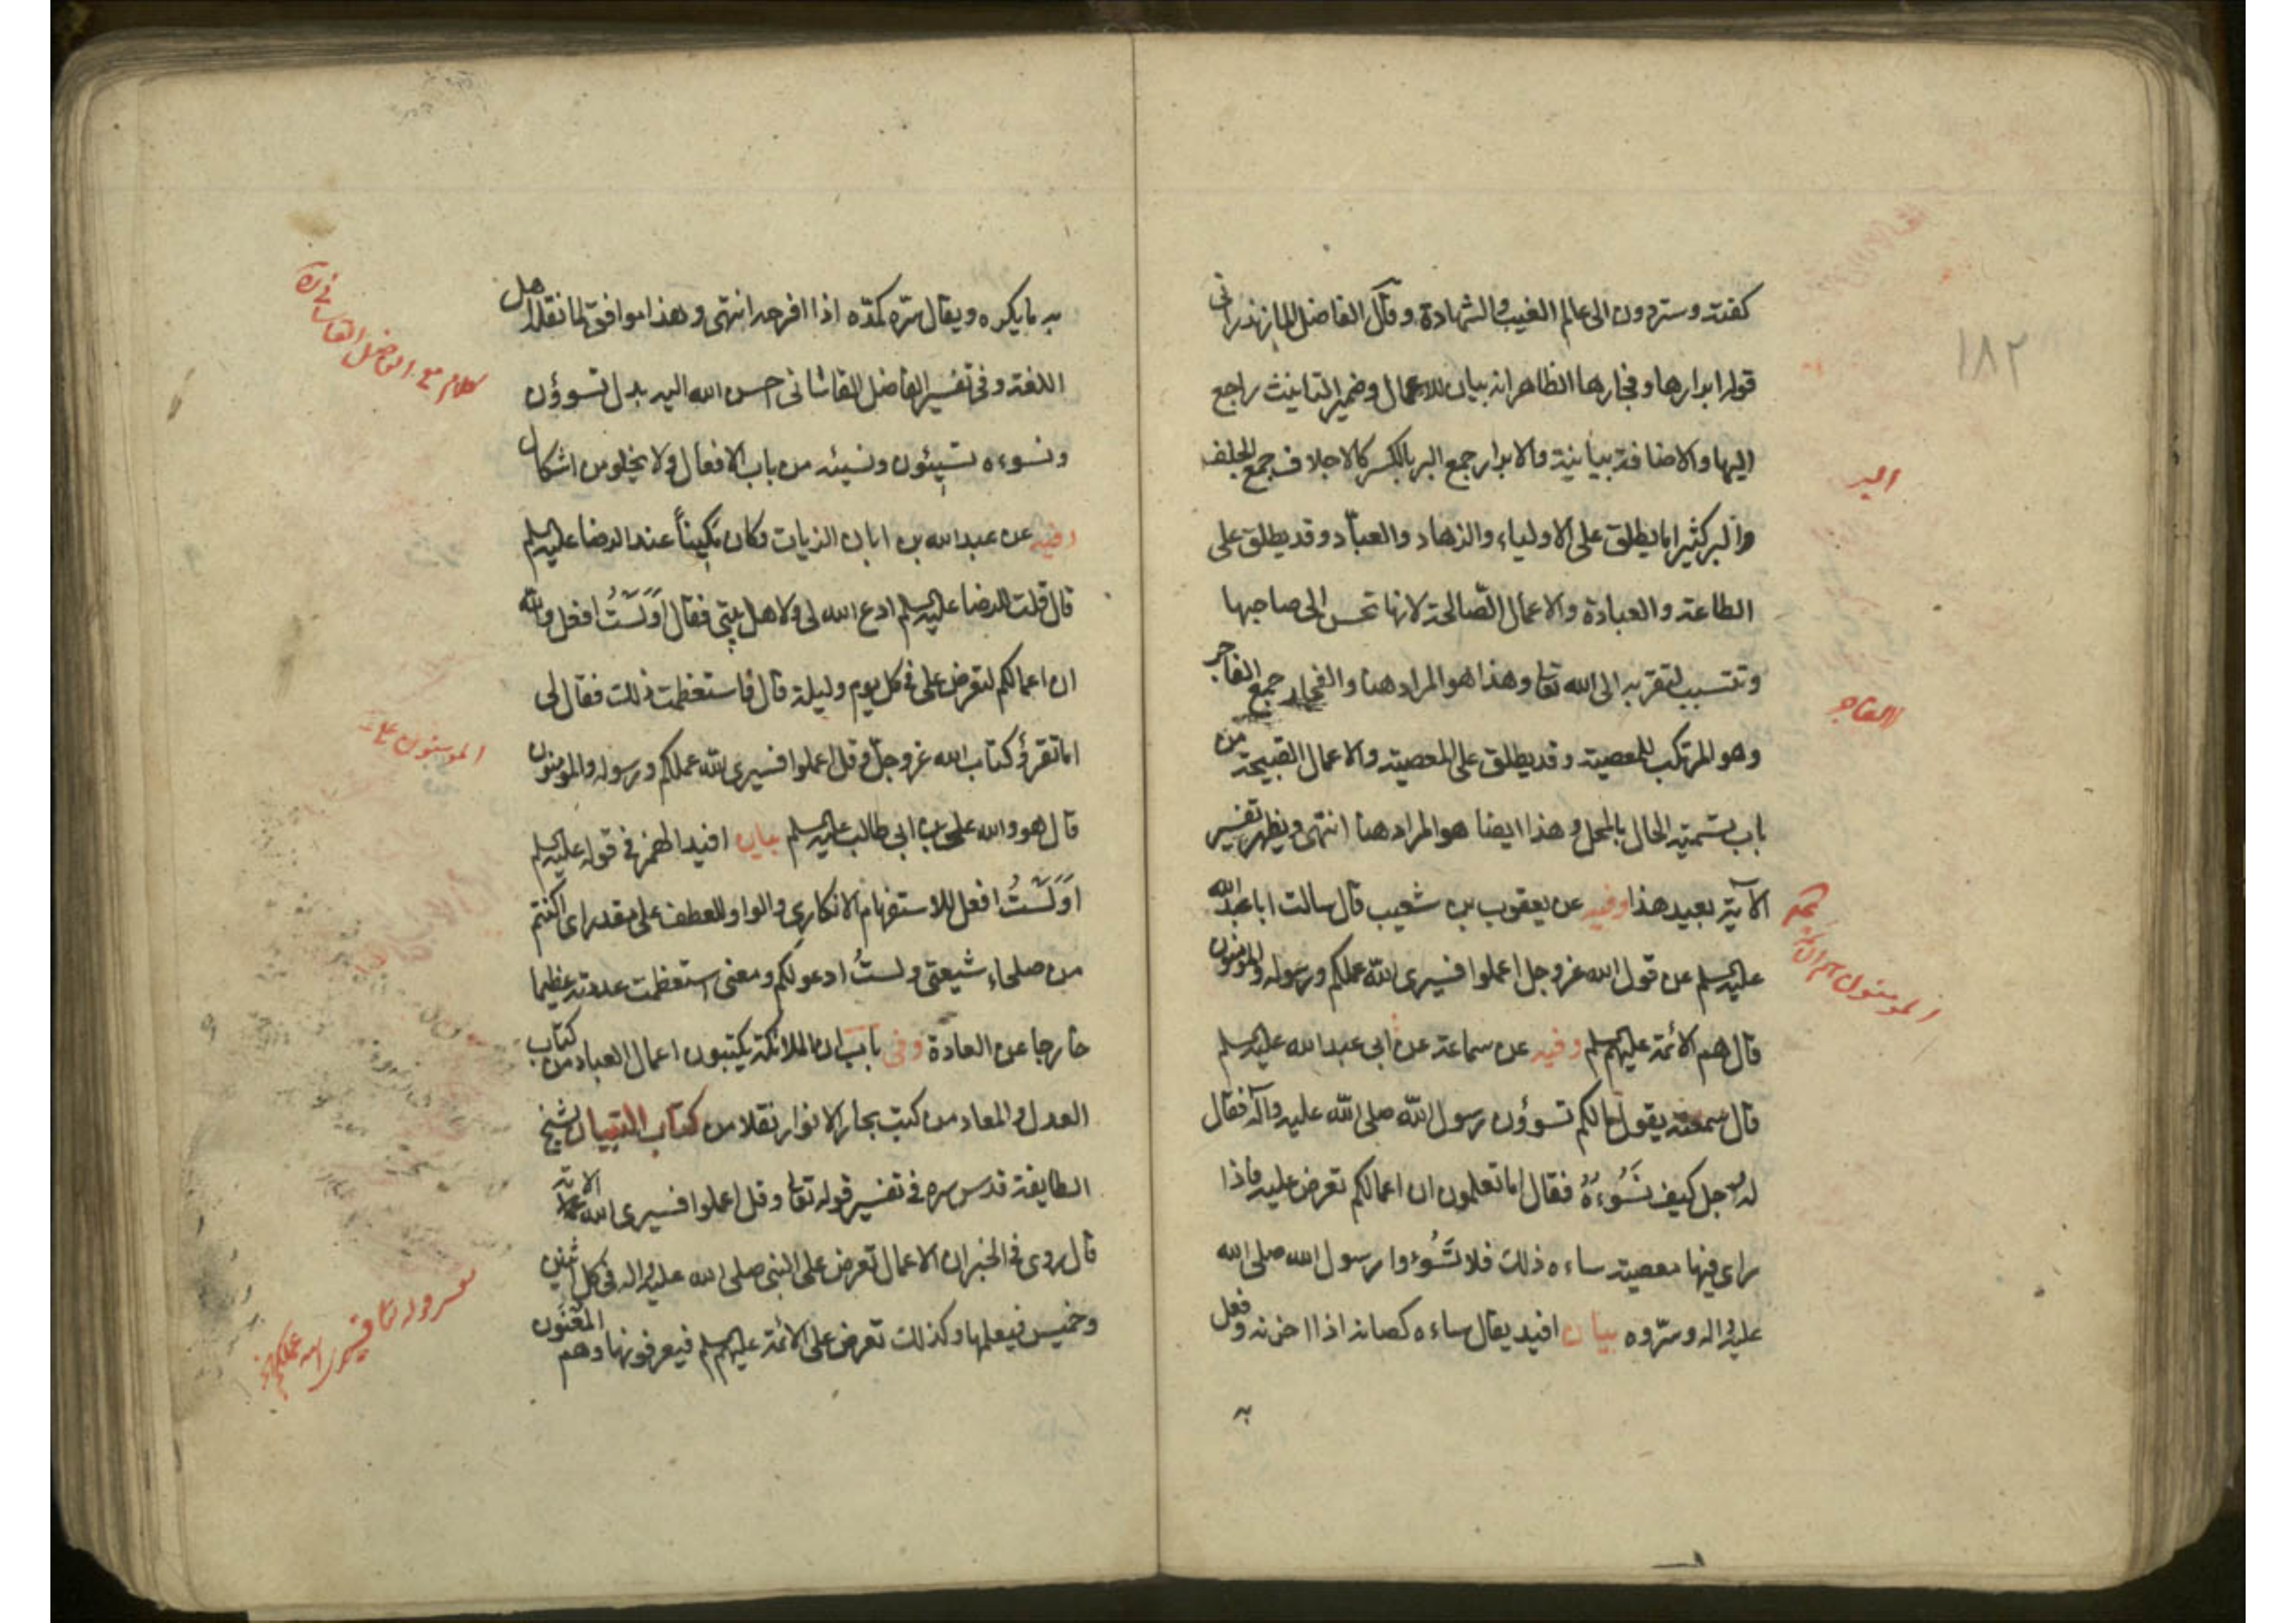 كقدته وستردون الى عالم الغيب والشهادة وقال الفاضل المازندرانى
قوله ابرارها وفجارها الظاهر انه بيان للاعمال وضمير التانيث راجع
اليها والاضافة بيانية والابرار جمع البر بالكسر كالاجلاف جمع الجلف
والبر كثيرا ما يطلق على الاولياء والزهاد والعبّاد وقد يطلق على
الطاعة والعبادة والاعمال الصّالحة لانها تحسن الى صاحبها
وتتسبب لتقربه الى الله تعا وهذا هو المراد هنا والفجار جمع الفاجر
وهو المرتكب للمعصية وقد يطلق على المعصية والاعمال القبيحة من
باب تسمية الحال بالمحل وهذا ايضا هو المراد هنا انتهى ويظهر تفسير
الآية بعيد هذا وفيه عن يعقوب بن شعيب قال سالت ابا عبد الله
عليه السلم عن قول الله عز وجل اعملوا فسيرى الله عملكم ورسوله والمؤمنون
قال هم الائمة عليهم السلم وفيه عن سماعة عن ابى عبد الله عليه السلم
قال سمعته يقول ما لكم تسوؤن رسول الله صلى الله عليه وآله فقال
له رجل كيف نَسُوءُهُ فقال اما تعلمون ان اعمالكم تعرض عليه فاذا
راى فيها معصية ساءه ذلك فلا تَسُوءوا رسول الله صلى الله
عليه واله وسرّوه بيان افيد يقال ساءه كصانه اذا احزنه وفعل
به
١٨٢
البر
الفاجر
المؤمنون هم الائمة
به ما يكره ويقال سرّه كمدّه اذا افرحه انتهى وهذا موافق لما نقله اهل
اللغة وفى تفسير الفاضل القاشانى احسن الله اليه بدل تسوؤن
ونسوءه تسيئون ونسيئه من باب الافعال ولا يخلو من اشكال
وفيه عن عبد الله بن ابان الزيات وكان مكينًا عند الرضا عليه السلم
قال قلت للرضا عليه السلم ادع الله لى ولاهل بيتى فقال اَوَلَسْتُ افعل والله
ان اعمالكم لتعرض على فى كل يوم وليلة قال فاستعظمت ذلك فقال لى
اما تقرؤ كتاب الله عز وجلّ وقل اعملوا فسيرى الله عملكم ورسوله والمؤمنون
قال هو والله على بن ابى طالب عليه السلم بيان افيد الهمز فى قوله عليه السلم
اَوَلَسْتُ افعل للاستفهام الانكارى والواو للعطف على مقدر اى اكنتم
من صلحاء شيعتى ولستُ ادعو لكم ومعنى استعظمت عددته عظيما
خارجا عن العادة وفى باب ان الملائكة يكتبون اعمال العباد من كتاب
العدل والمعاد من كتب بحار الانوار نقلا من كتاب التبيان لشيخ
الطايفة قدس سره فى تفسير قوله تعا وقل اعملوا فسيرى الله عملكم الاية
قال روى فى الخبر ان الاعمال تعرض على النبى صلى الله عليه واله فى كل اثنين
وخميس فيعلمها وكذلك تعرض على الائمة عليهم السلم فيعرفونها وهم المعنون
كلام مع الفاضل القاسانى ره
المؤمنون
تفسير قوله تعا فسيرى الله عملكم